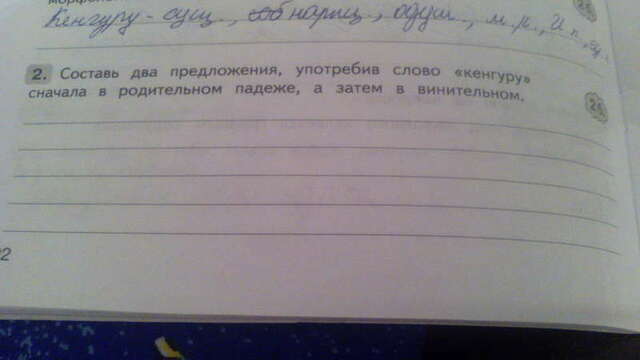 Кенгуру - сущ., нариц., одуш., м.р., И.п.,
2. Составь два предложения, употребив слово «кенгуру»
сначала в родительном падеже, а затем в винительном.